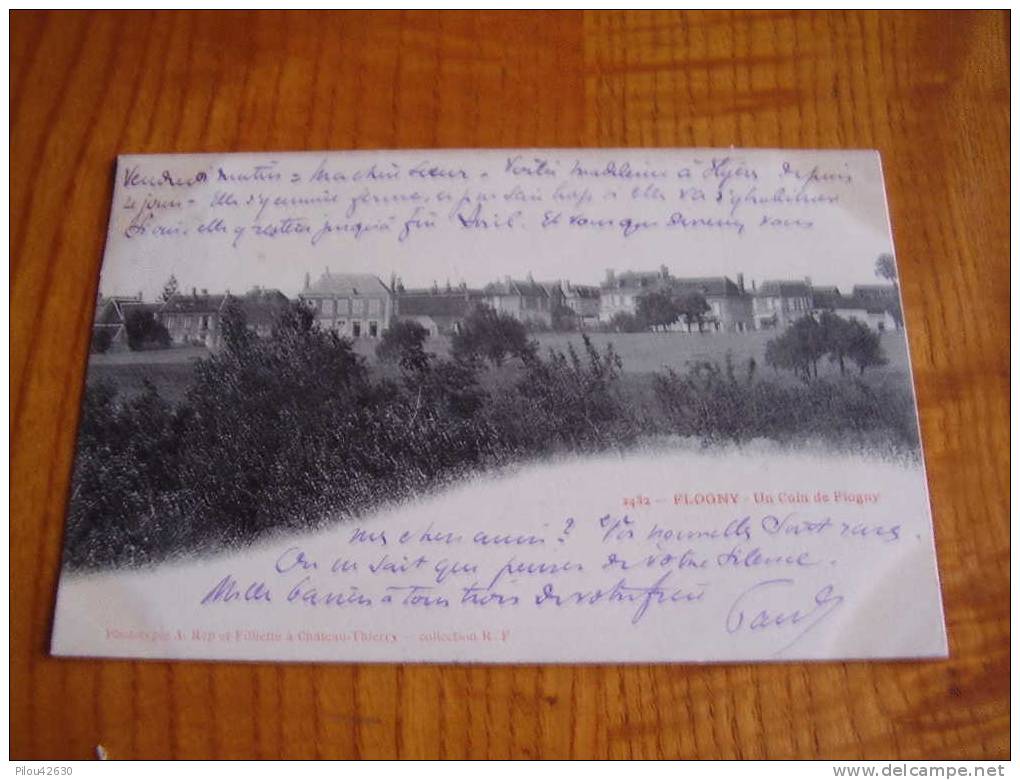 Vendredi matin = Ma chère Sœur - Voilà Madeleine à Hyères depuis
jours - Elle s'y ennuie ferme, et pas sans elle va s'y habituer
elle y restera jusqu'à fin Avril. Et vous que devenez vous
2432 - FLOGNY - Un Coin de Flogny
mes chers amis? Vos nouvelles sont rares.
On ne sait que penser de votre silence.
Mille baisers à tous trois de votre frère
Phototypie A. Rep et Filliette à Château-Thierry - collection R. F
Pilou42630
delcampe.net